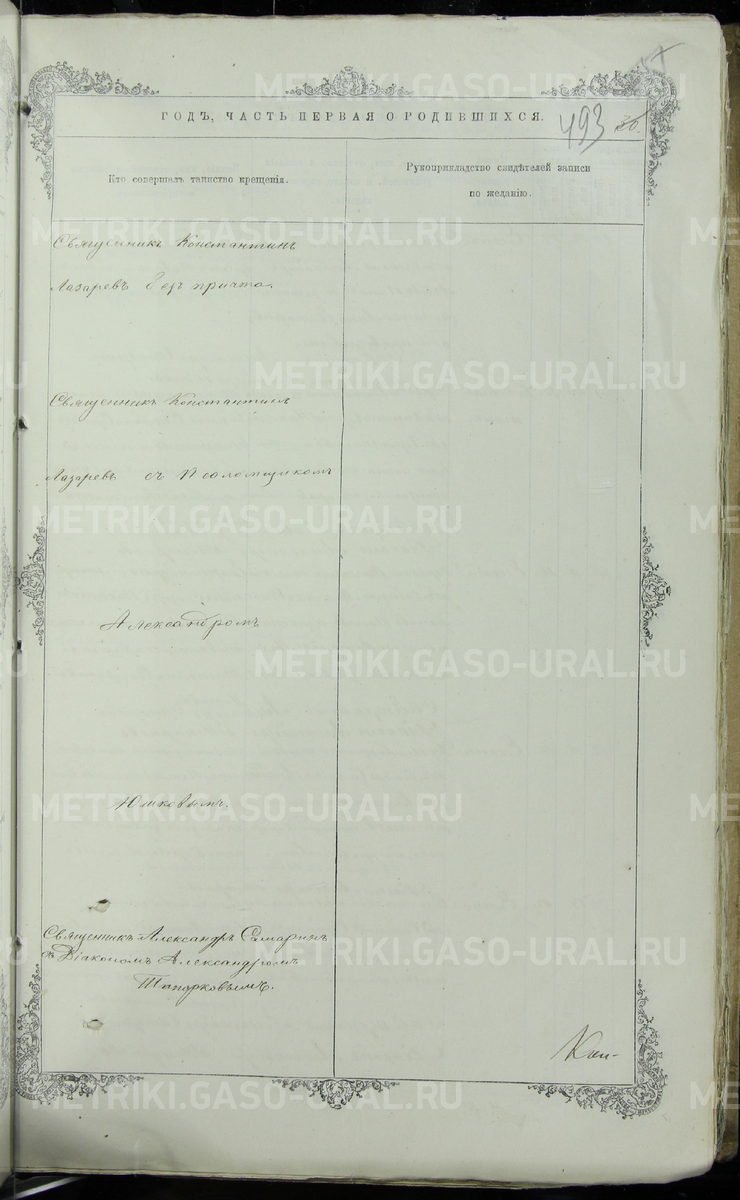 ГОДЪ, ЧАСТЬ ПЕРВАЯ О РОДИВШИХСЯ.
493
Кто совершалъ таинство крещенія.
Рукоприкладство свидѣтелей записи
по желанію.
Священникъ Константинъ
Лазаревъ безъ причта.
Священникъ Константинъ
Лазаревъ съ Псаломщикомъ
Александромъ
Юшковымъ.
Священникъ Александръ Самаринъ
съ Діакономъ Александромъ
Топорковымъ.
METRIKI.GASO-URAL.RU